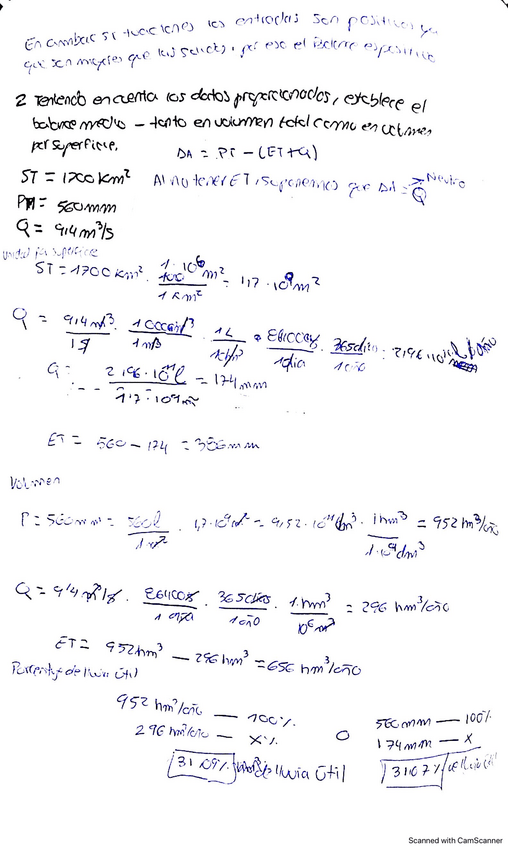 En ambas situaciones las entradas son positivas ya
que son mayores que las salidas, por eso el balance es positivo
2 Teniendo en cuenta los datos proporcionados, establece el
balance medio – tanto en volumen total como en volumen
por superficie.
ΔA = PT – (ET+Q)
ST = 1700 km²
Al no tener ET, suponemos que ΔA = Neutro
PM = 560 mm
Q = 9,4 m³/s
Unidad por superficie
ST = 1700 km² · 1·10⁶ m² / 1 km² = 1,7 · 10⁹ m²
Q = 9,4 m³ / 1 s · 1000 dm³ / 1 m³ · 1 L / 1 dm³ · 86400 s / 1 día · 365 día / 1 año = 2,96 · 10¹¹ l/año
Q = 2,96 · 10¹¹ l / 1,7 · 10⁹ m² = 174 mm
ET = 560 – 174 = 386 mm
Volumen
P = 560 mm = 560 l / 1 m² · 1,7 · 10⁹ m² = 9,52 · 10¹¹ dm³ · 1 hm³ / 1·10⁹ dm³ = 952 hm³/año
Q = 9,4 m³/s · 86400 s / 1 día · 365 días / 1 año · 1 hm³ / 10⁶ m³ = 296 hm³/año
ET = 952 hm³ – 296 hm³ = 656 hm³/año
Porcentaje de lluvia útil
952 hm³/año — 100%
296 hm³/año — X%
31,09% de lluvia útil
o
560 mm — 100%
174 mm — X
31,07% de lluvia útil
Scanned with CamScanner